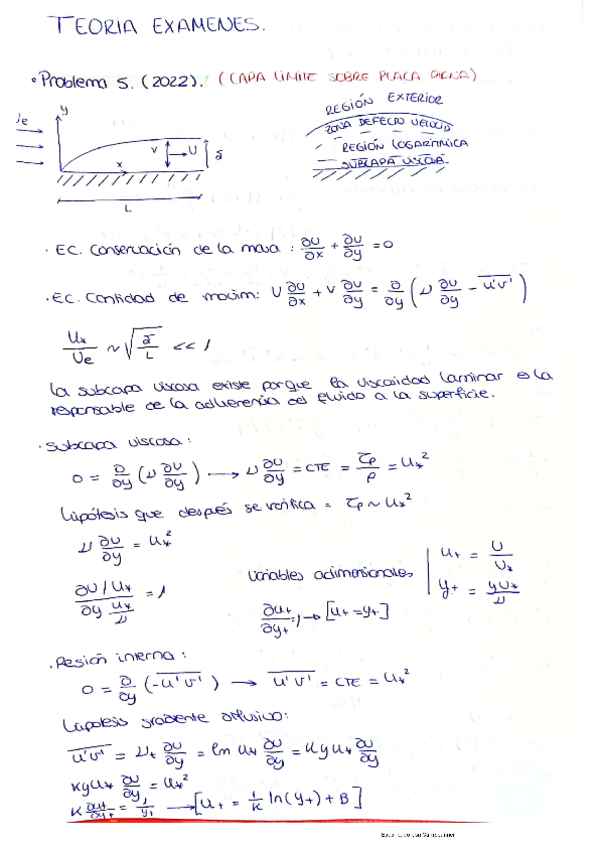 TEORIA EXAMENES.
• Problema 5. (2022). (CAPA LÍMITE SOBRE PLACA PLANA)
REGIÓN EXTERIOR
ZONA DEFECTO VELOCID
REGIÓN LOGARITMICA
SUBCAPA VISCOSA.
y
V
U
δ
x
L
· EC. Conservación de la masa : ∂U/∂x + ∂U/∂y = 0
· EC. Cantidad de movim: U ∂U/∂x + V ∂U/∂y = ∂/∂y (ν ∂U/∂y - \overline{u'v'})
U*/Ue ~ √(δ/L) << 1
La subcapa viscosa existe porque la viscosidad laminar es la
responsable de la adherencia del fluido a la superficie.
· Subcapa viscosa:
0 = ∂/∂y (ν ∂U/∂y) → ν ∂U/∂y = CTE = τp/ρ = U*²
Hipótesis que después se verifica = τp ~ U*²
ν ∂U/∂y = U*²
∂U/U* / ∂y U*/ν = 1
Variables adimensionales
U+ = U/U*
y+ = yU*/ν
∂U+/∂y+ = 1 → [U+ = y+]
. Región interna:
0 = ∂/∂y (-\overline{u'v'}) → \overline{u'v'} = CTE = U*²
Hipótesis gradiente difusivo:
\overline{u'v'} = νt ∂U/∂y = lm U* ∂U/∂y = KyU* ∂U/∂y
KyU* ∂U/∂y = U*²
K ∂U+/∂y+ = 1/y+ → [U+ = 1/K ln(y+) + B]